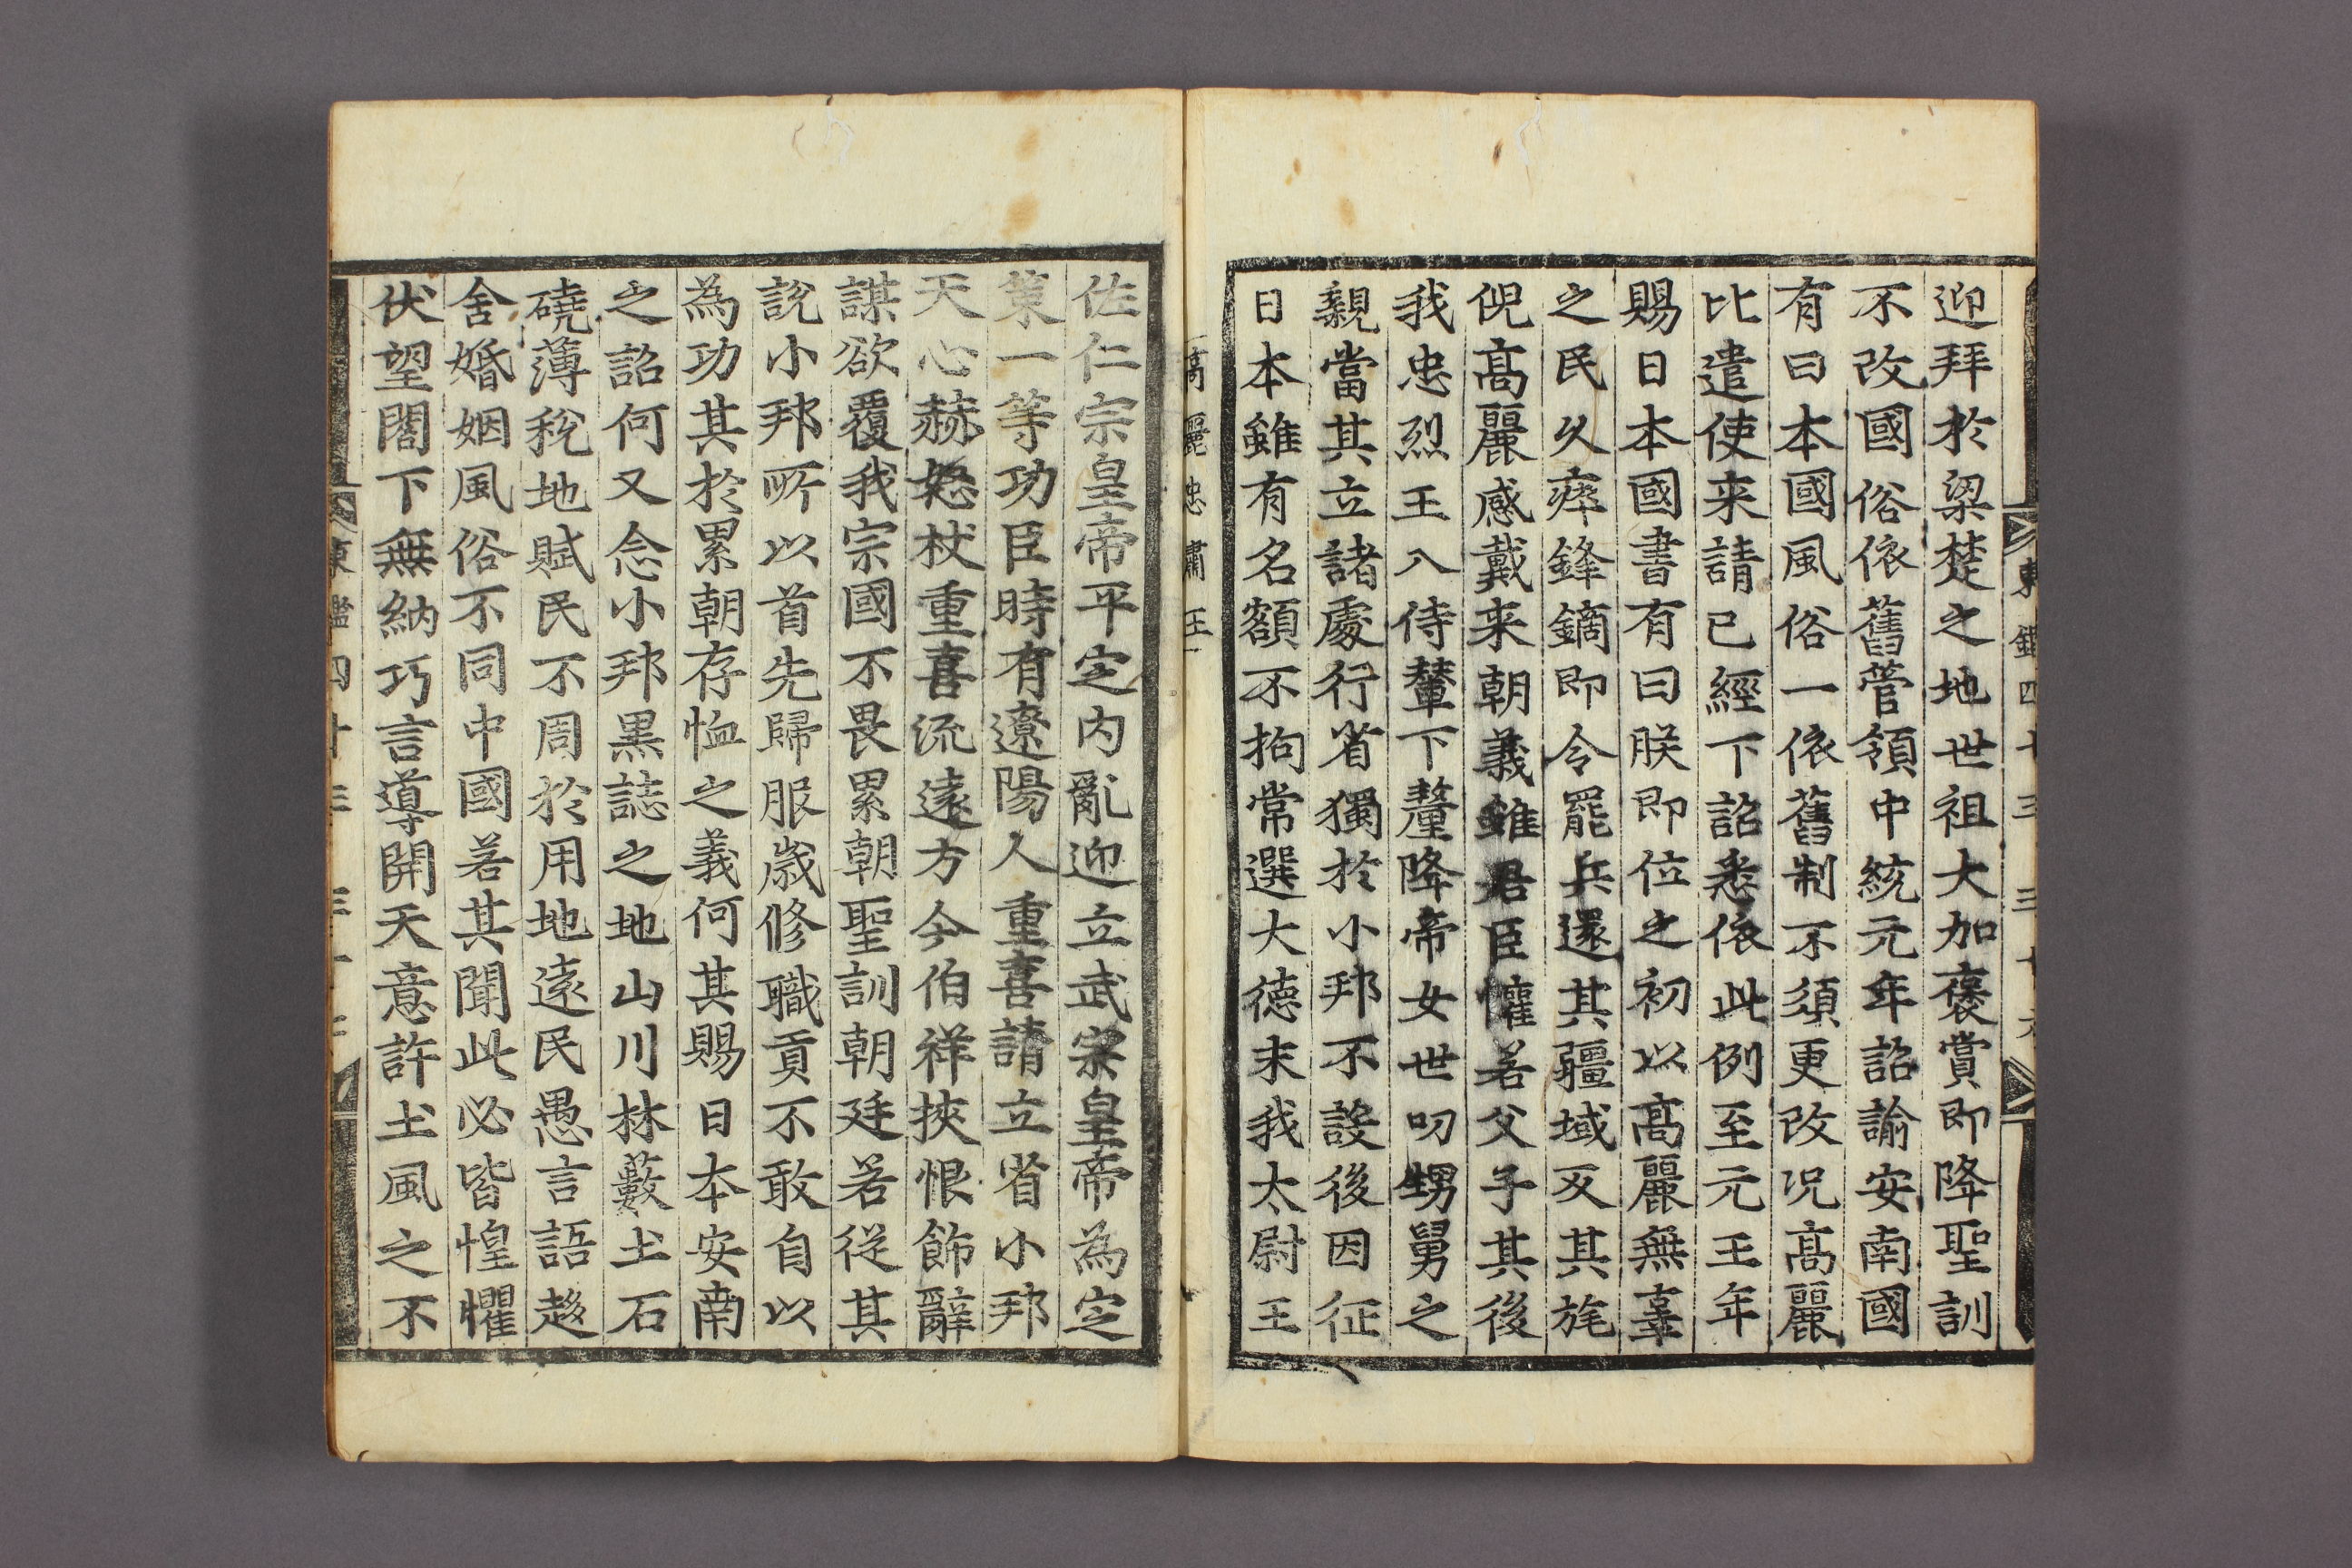 迎拜於梁楚之地世祖大加褒賞即降聖訓
不改國俗依舊管領中統元年詔諭安南國
有曰本國風俗一依舊制不須更改況高麗
比遣使来請已經下詔悉依此例至元王年
賜日本國書有曰朕即位之初以高麗無辜
之民久瘁鋒鏑即令罷兵還其疆域反其旄
倪高麗感戴来朝義雖君臣懽若父子其後
我忠烈王入侍輦下釐降帝女世叨甥舅之
親當其立諸處行省獨於小邦不設後因征
日本雖有名額不拘常選大德末我太尉王
高麗忠肅王
佐仁宗皇帝平定内亂迎立武宗皇帝為定
策一等功臣時有遼陽人重喜請立省小邦
天心赫怒杖重喜流遠方今伯祥挾恨飾辭
謀欲覆我宗國不畏累朝聖訓朝廷若從其
說小邦所以首先歸服歲修職貢不敢自以
為功其於累朝存恤之義何其賜日本安南
之詔何又念小邦黒誌之地山川林藪土石
磽薄稅地賦民不周於用地遠民愚言語趍
舍婚姻風俗不同中國若其聞此必皆惶懼
伏望閤下無納巧言導開天意許土風之不